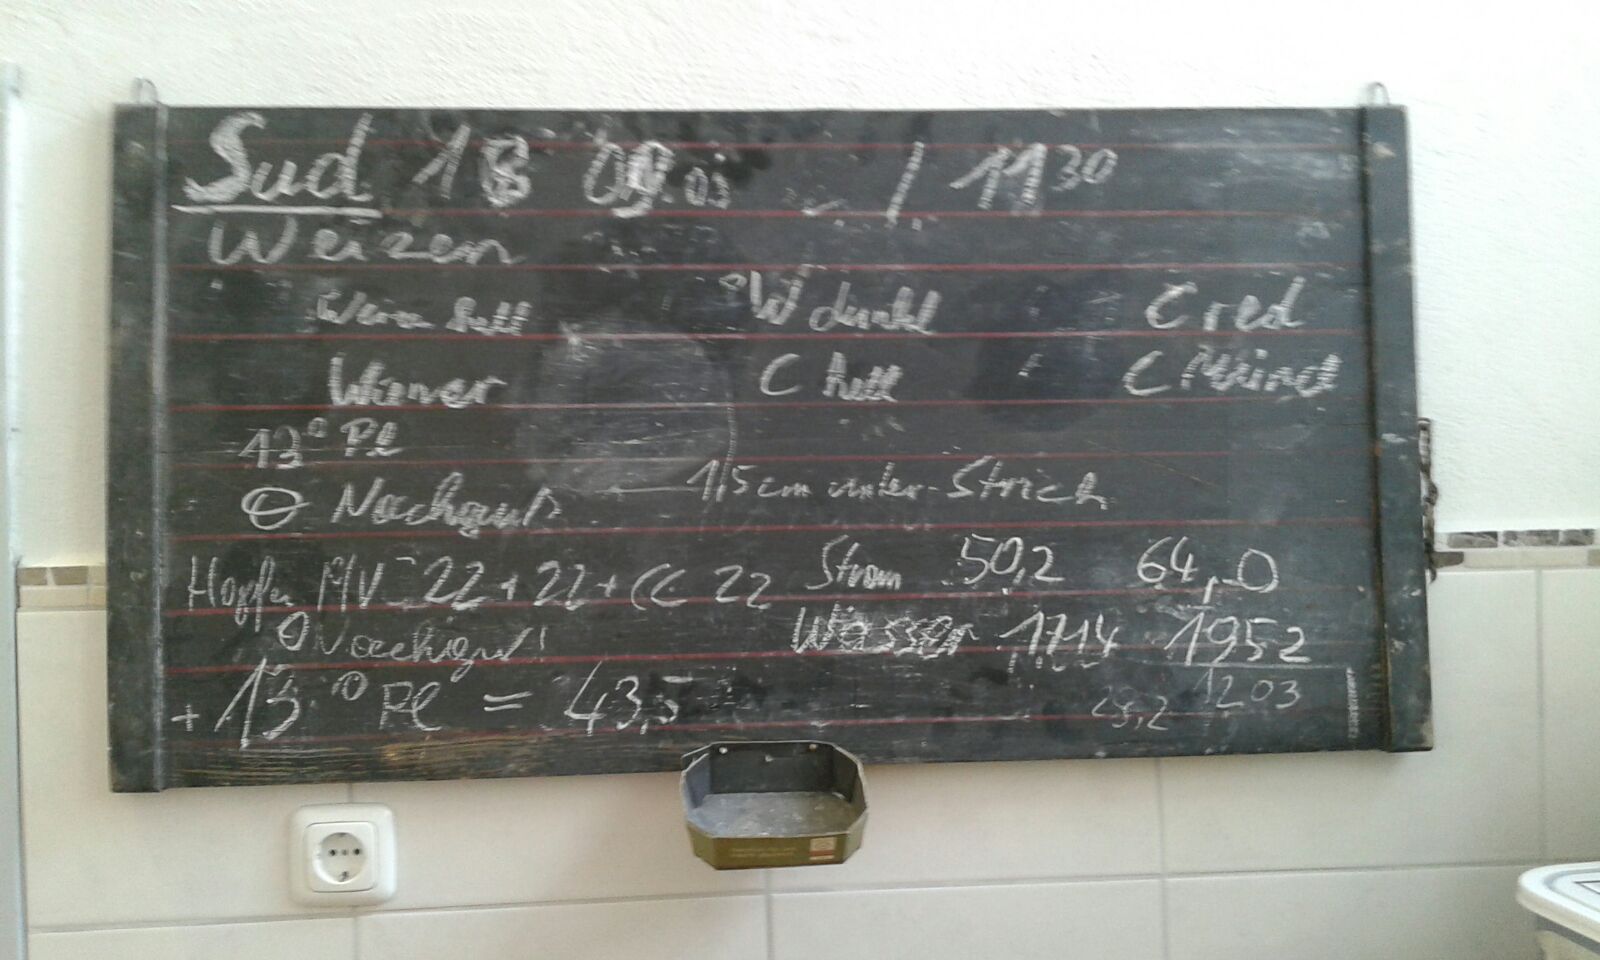 Sud 18 09.05 / 11 30
Weizen
Weiz hell W dunkl C red
Wiener C hell C Münch
13° Pl
Nachguß 1,5 cm unter Strich
Hopfen 22 + 22 + CC 22 Strom 50,2 64,0
Nachguß! Wasser 1714 1952
+ 13° Pl = 43,5 1203